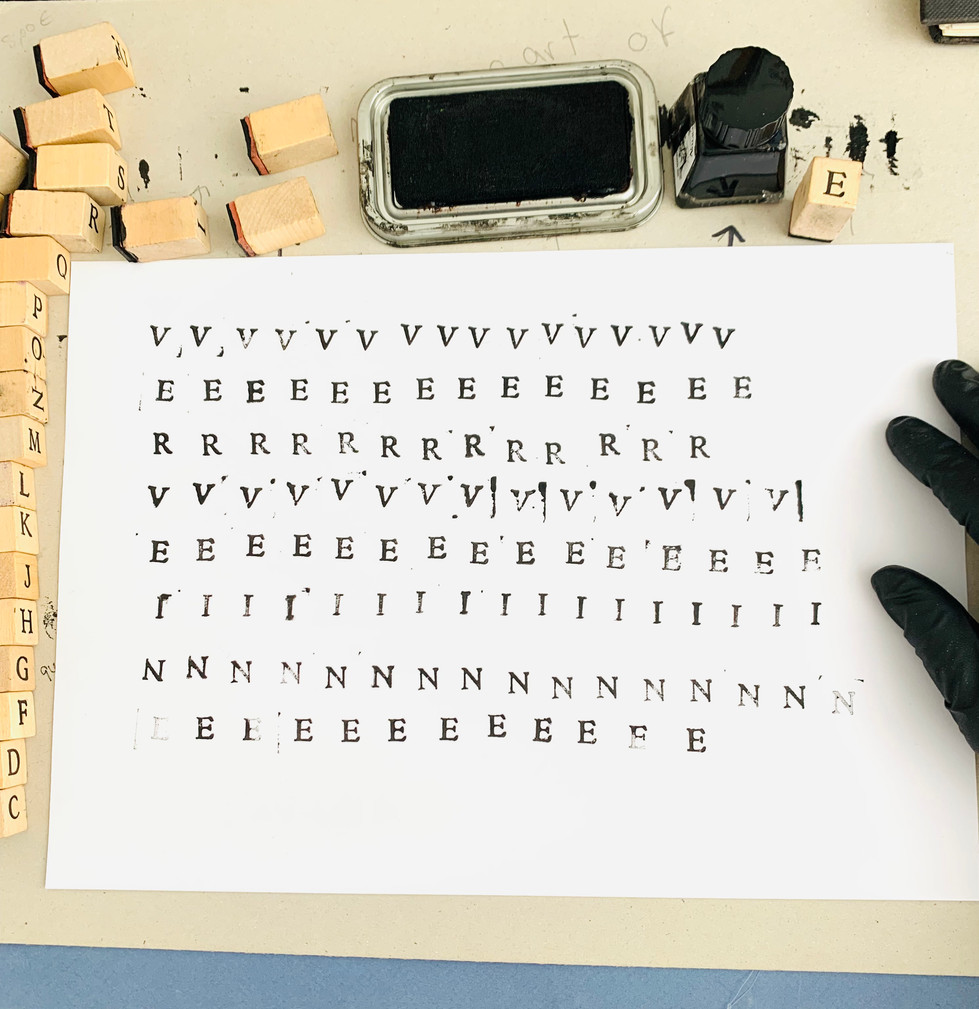 art or
T
S
R
E
Q
P
O
M
L
K
J
H
G
F
D
C
V V V V V V V V V V V V V V V V
E E E E E E E E E E E E E E
R R R R R R R R R R R R R
V V V V V V V V V V V V V V
E E E E E E E E E E E E E E E
I I I I I I I I I I I I I I I I I
N N N N N N N N N N N N N N N N
E E E E E E E E E E E E